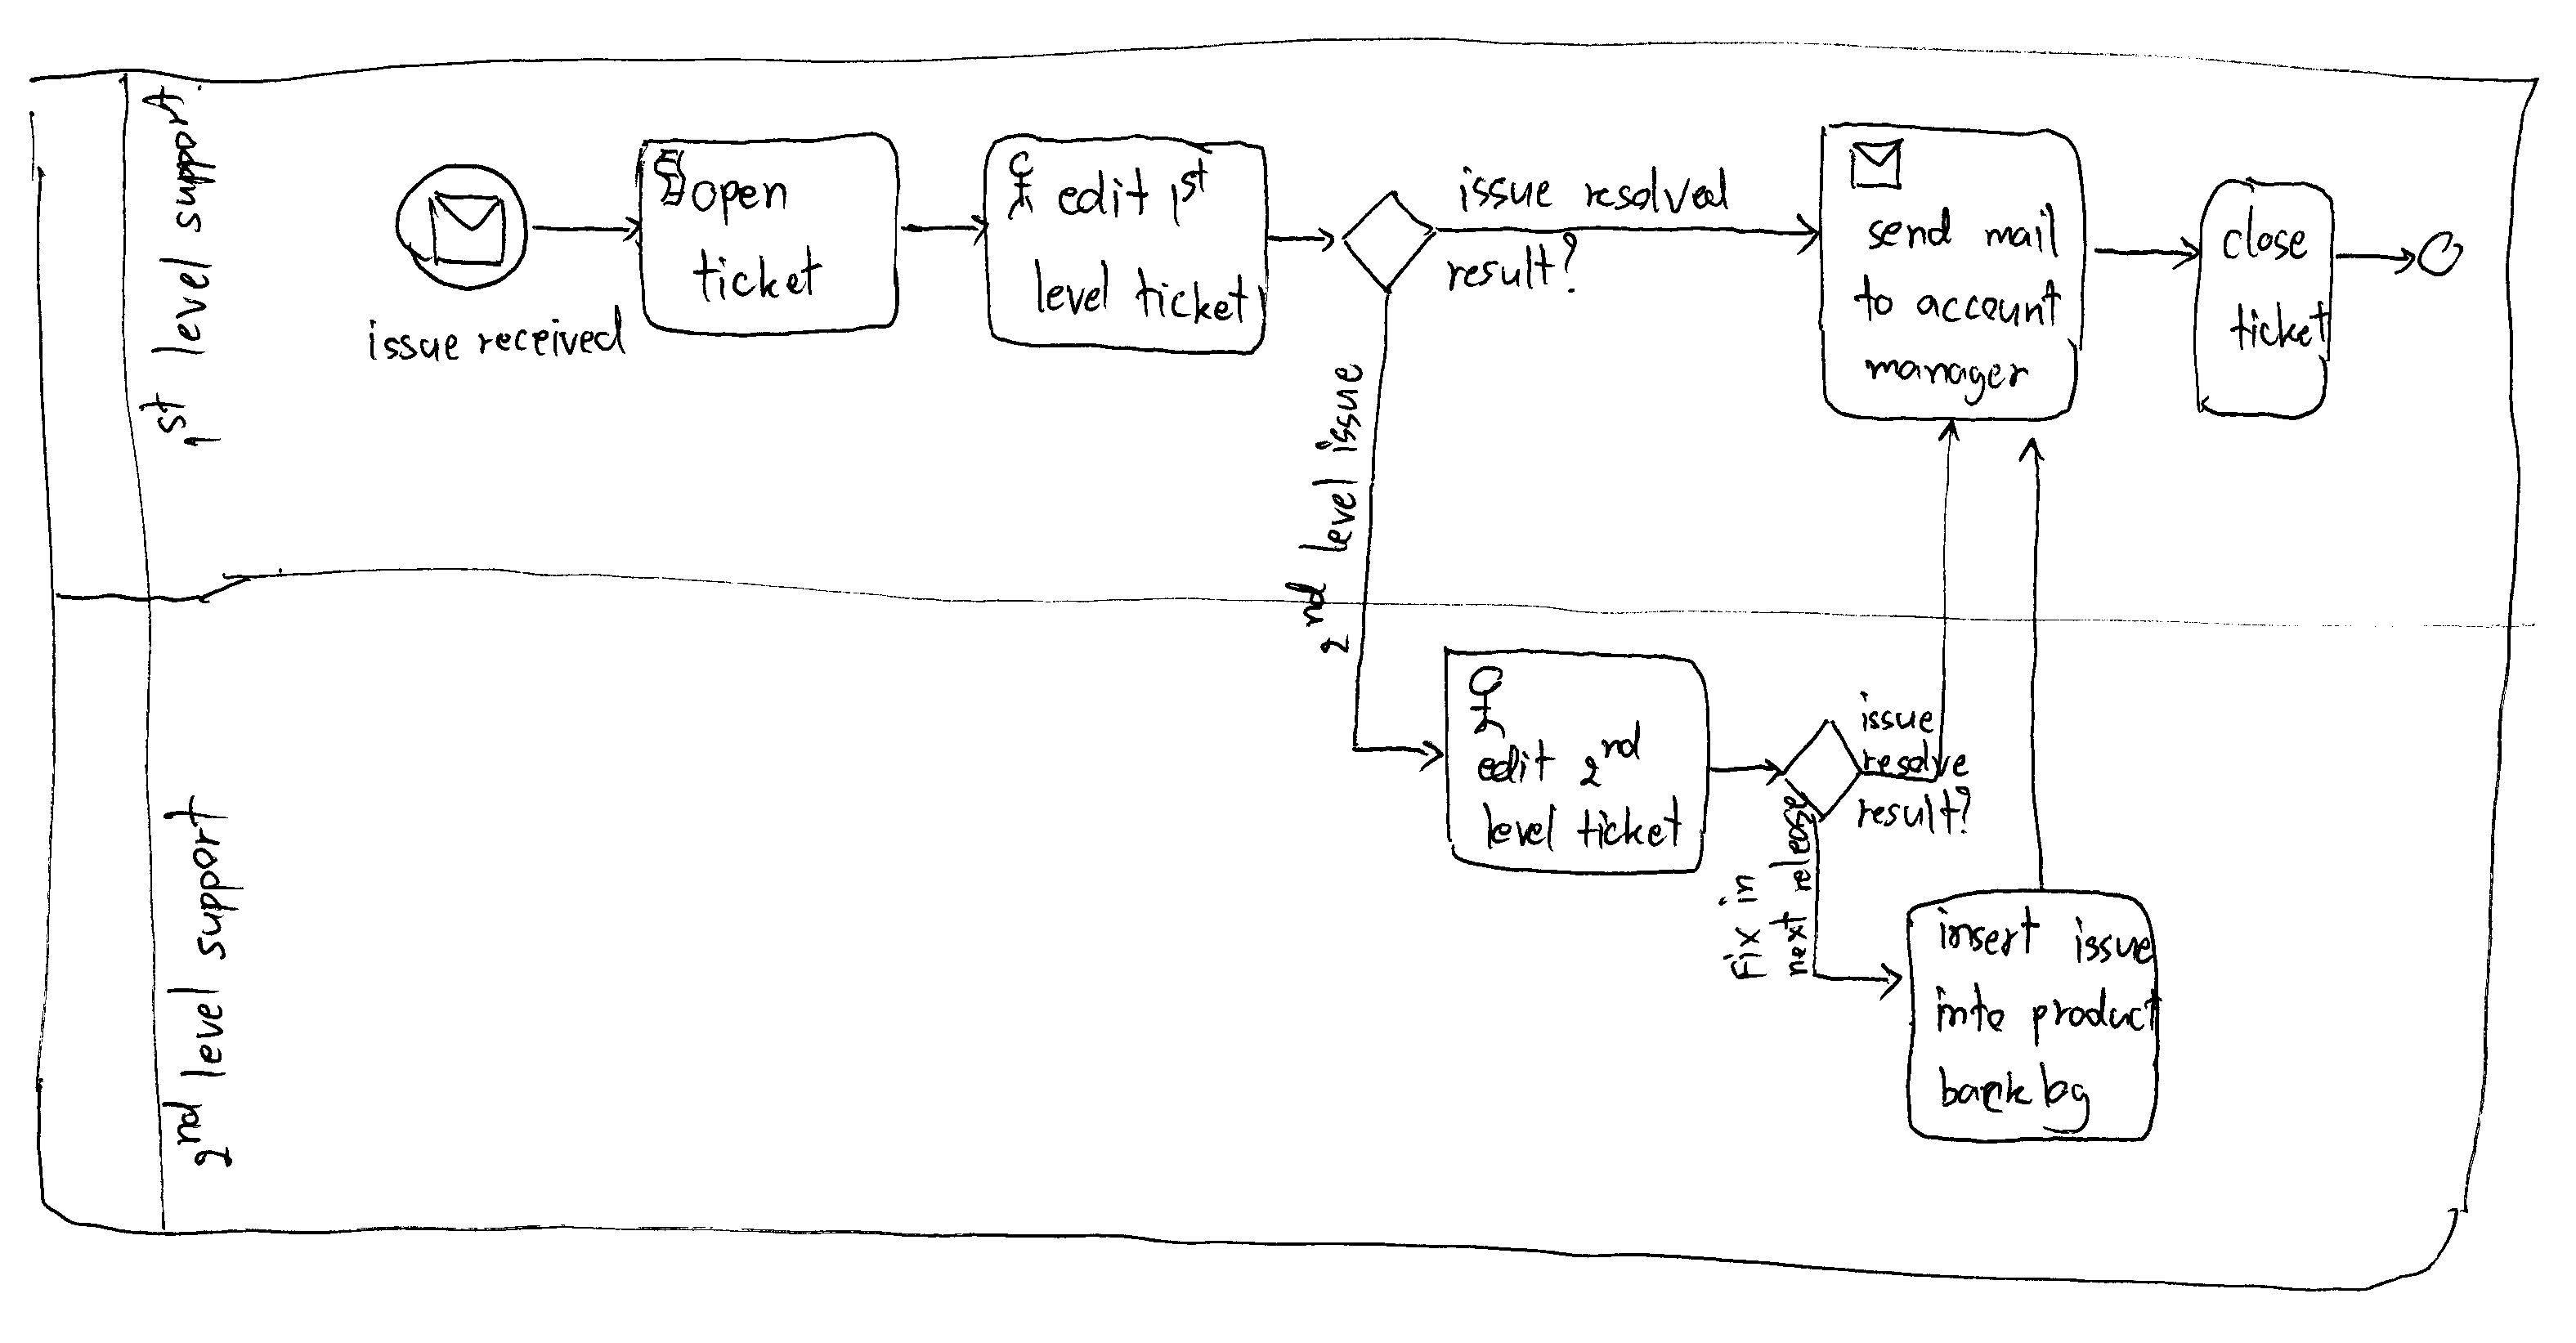 1st level support
issue received
open
ticket
edit 1st
level ticket
issue resolved
result?
2nd level issue
send mail
to account
manager
close
ticket
2nd level support
edit 2nd
level ticket
issue
resolve
result?
Fix in
next release
insert issue
into product
backlog